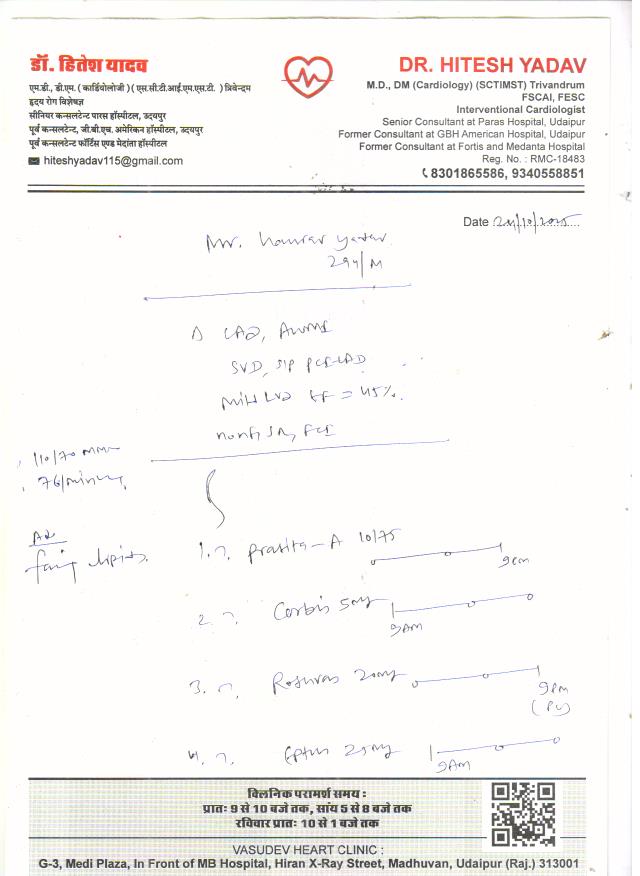 डॉ. हितेश यादव
एम.डी., डी.एम. ( कार्डियोलोजी ) ( एस.सी.टी.आई.एम.एस.टी. ) त्रिवेन्द्रम
हृदय रोग विशेषज्ञ
सीनियर कन्सलटेन्ट पारस हॉस्पीटल, उदयपुर
पूर्व कन्सलटेन्ट, जी.बी.एच. अमेरिकन हॉस्पीटल, उदयपुर
पूर्व कन्सलटेन्ट फोर्टिस एण्ड मेदांता हॉस्पीटल
hiteshyadav115@gmail.com
DR. HITESH YADAV
M.D., DM (Cardiology) (SCTIMST) Trivandrum
FSCAI, FESC
Interventional Cardiologist
Senior Consultant at Paras Hospital, Udaipur
Former Consultant at GBH American Hospital, Udaipur
Former Consultant at Fortis and Medanta Hospital
Reg. No. : RMC-18483
8301865586, 9340558851
Date /10/2025
Mr. yadav
29y/M
Δ CAD, AWMI
SVD, S/P PCI-LAD
Mild LVD EF = 45%.
110/70 mm
76/minute
Ad
lipids.
1. T. Prasita-A 10/75
9pm
2. T. Corbis 5mg
9AM
3. T. Rosuvas 20mg
9pm
4. T. 25mg
9AM
क्लिनिक परामर्श समय :
प्रातः 9 से 10 बजे तक, सांय 5 से 8 बजे तक
रविवार प्रातः 10 से 1 बजे तक
VASUDEV HEART CLINIC :
G-3, Medi Plaza, In Front of MB Hospital, Hiran X-Ray Street, Madhuvan, Udaipur (Raj.) 313001